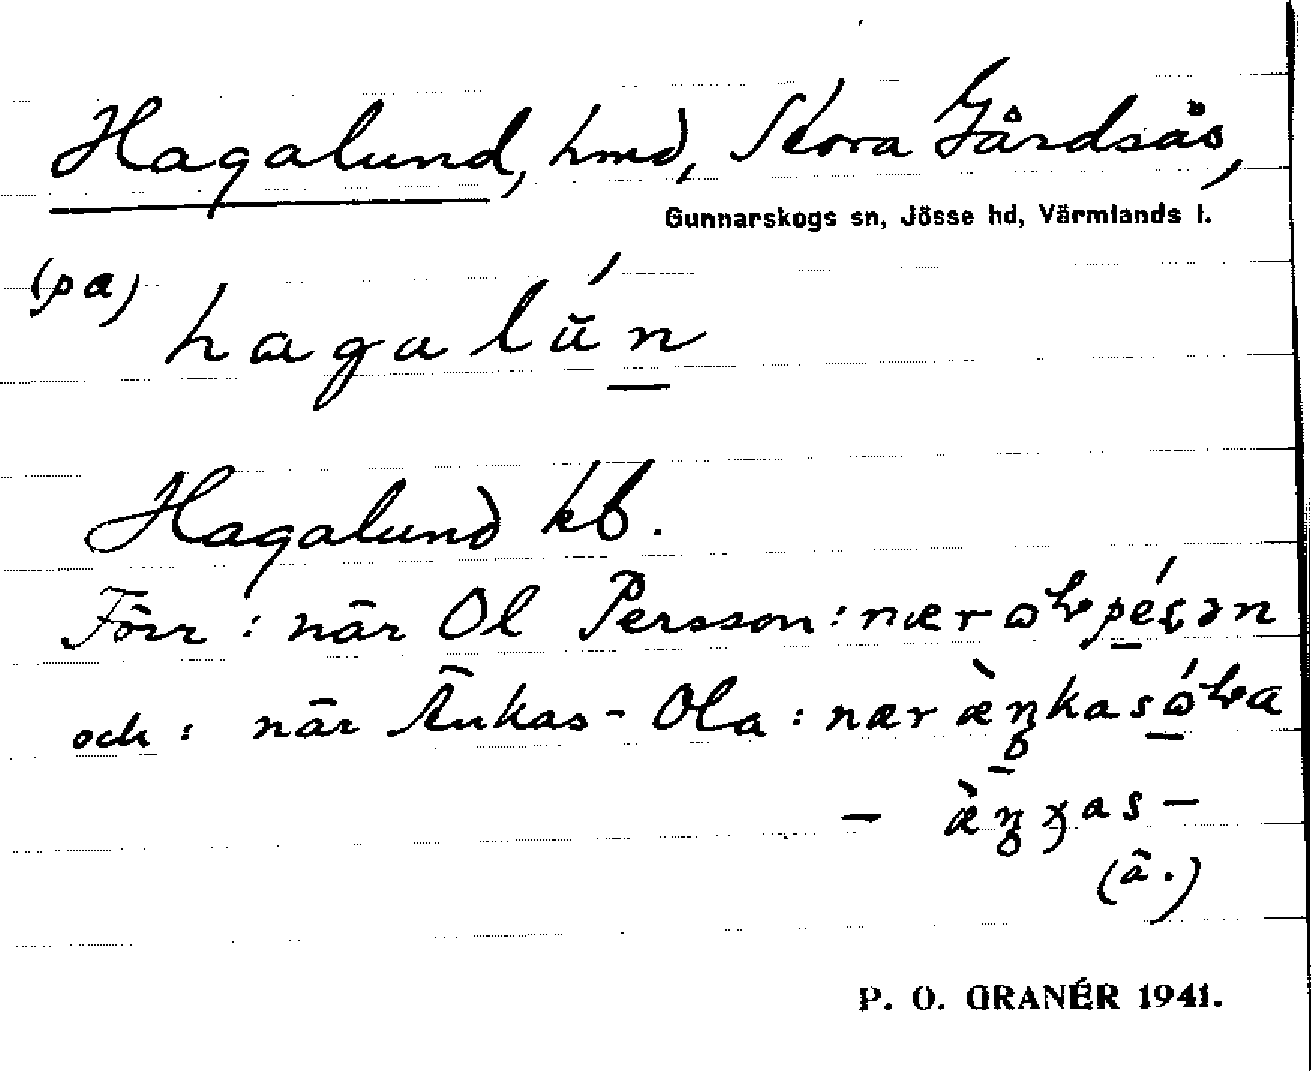 Hagalund, hmd, Stora Gårdsås,
Gunnarskogs sn, Jösse hd, Värmlands l.
(pa)
hagalún
Hagalund kb.
Förr : när Ol Persson : nær
och : när Änkas-Ola : nær
(ä.)
P. O. GRANÉR 1941.